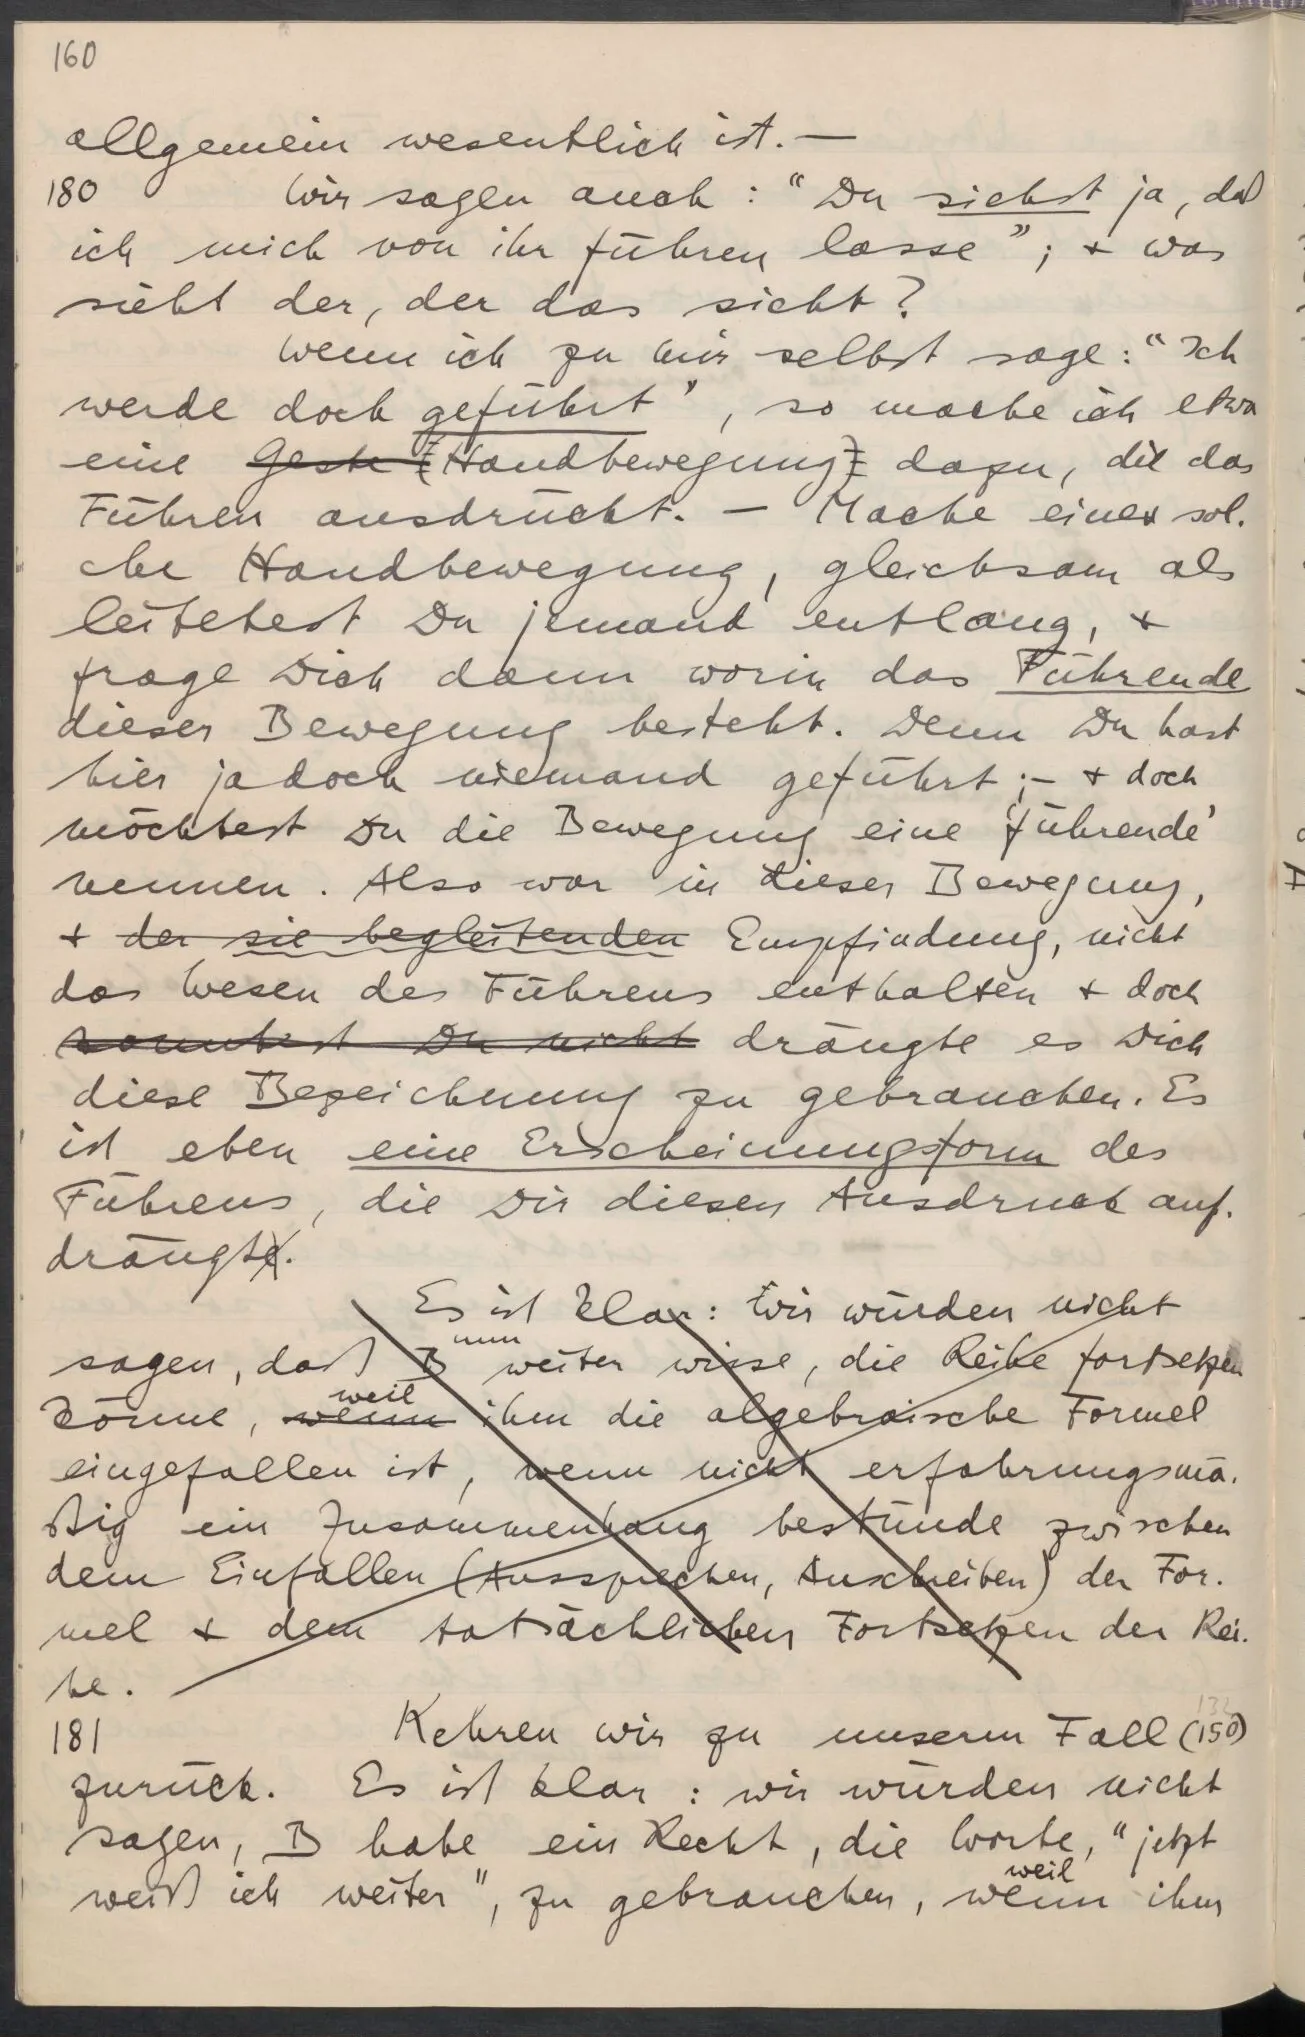 160
allgemein wesentlich ist. —
180 Wir sagen auch: “Du siehst ja, daß
ich mich von ihr führen lasse”; + was
sieht der, der das sieht?
Wenn ich zu mir selbst sage: “Ich
werde doch geführt”, so mache ich etwa
eine Geste (Handbewegung) dazu, die das
Führen ausdrückt. — Mache eine sol-
che Handbewegung, gleichsam als
leitetest Du jemand entlang, +
frage Dich dann worin das Führende
dieser Bewegung besteht. Denn Du hast
hier ja doch niemand geführt; – + doch
möchtest Du die Bewegung eine ‘führende’
nennen. Also war in dieser Bewegung,
+ der sie begleitenden Empfindung, nicht
das Wesen des Führens enthalten + doch
konntest Du nicht drängte es Dich
diese Bezeichnung zu gebrauchen. Es
ist eben eine Erscheinungsform des
Führens, die Dir diesen Ausdruck auf-
drängte.
Es ist klar: Wir würden nicht
sagen, daß B nun weiter wisse, die Reihe fortsetzen
könne, wenn weil ihm die algebraische Formel
eingefallen ist, wenn nicht erfahrungsmä-
ßig ein Zusammenhang bestünde zwischen
dem Einfallen (Aussprechen, Anschreiben) der For-
mel + dem tatsächlichen Fortsetzen der Rei-
he.
181 Kehren wir zu unserm Fall (150)
zurück. Es ist klar: wir würden nicht
sagen, B habe ein Recht, die Worte, “jetzt
weiß ich weiter”, zu gebrauchen, wenn weil ihm